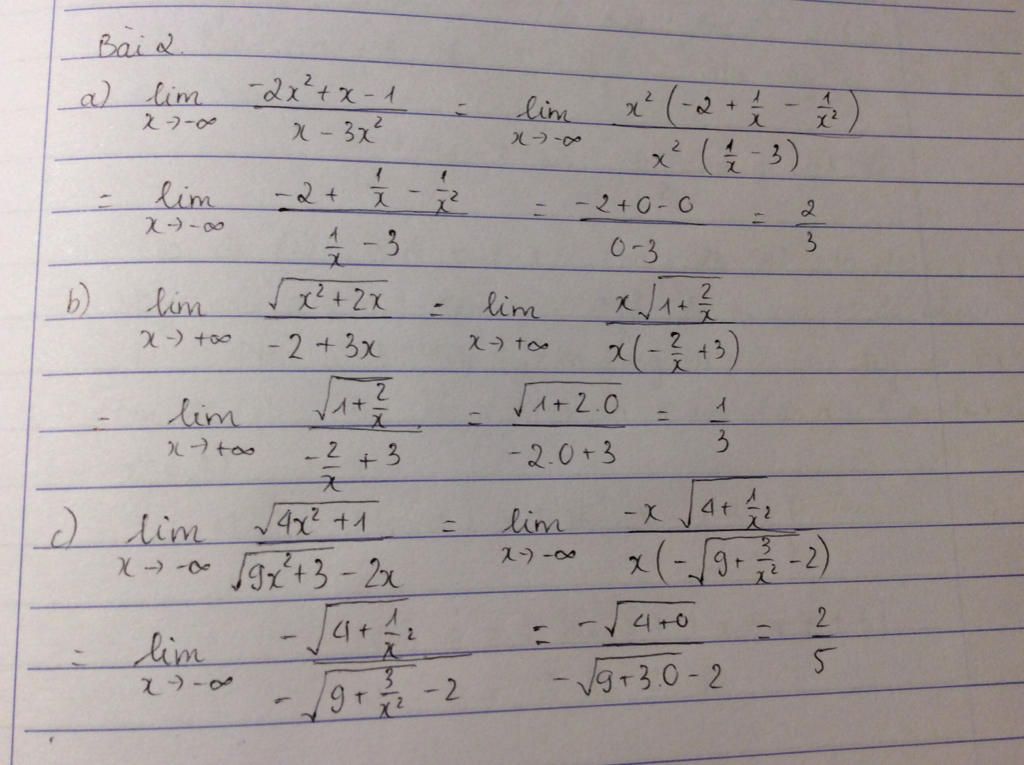 Bài 2.
a) lim x→-∞ (-2x² + x - 1)/(x - 3x²) = lim x→-∞ x²(-2 + 1/x - 1/x²)/x²(1/x - 3)
= lim x→-∞ (-2 + 1/x - 1/x²)/(1/x - 3) = (-2+0-0)/(0-3) = 2/3
b) lim x→+∞ √(x²+2x)/(-2+3x) = lim x→+∞ x√(1+2/x)/x(-2/x +3)
= lim x→+∞ √(1+2/x)/(-2/x + 3) = √(1+2.0)/(-2.0+3) = 1/3
c) lim x→-∞ √(4x²+1)/(√(9x²+3) - 2x) = lim x→-∞ -x√(4+1/x²)/x(-√(9+3/x²) - 2)
= lim x→-∞ -√(4+1/x²)/(-√(9+3/x²) - 2) = -√(4+0)/(-√(9+3.0) - 2) = 2/5